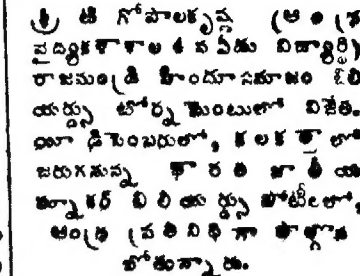 శ్రీ టి గోపాలకృష్ణ (ఆంధ్ర
వైద్యకళాశాల 4 వ ఏడు విద్యార్థి)
రాజమండ్రి హిందూసమాజం బిలి
యర్డ్సు టోర్న మెంటులో విజేత.
యీ డిసెంబరులో, కలకత్తాలో
జరుగనున్న భారత జాతీయ
స్నూకర్ బిలియర్డ్సు పోటీలలో,
ఆంధ్ర ప్రతినిధిగా పాల్గొన
బోతున్నాడు.